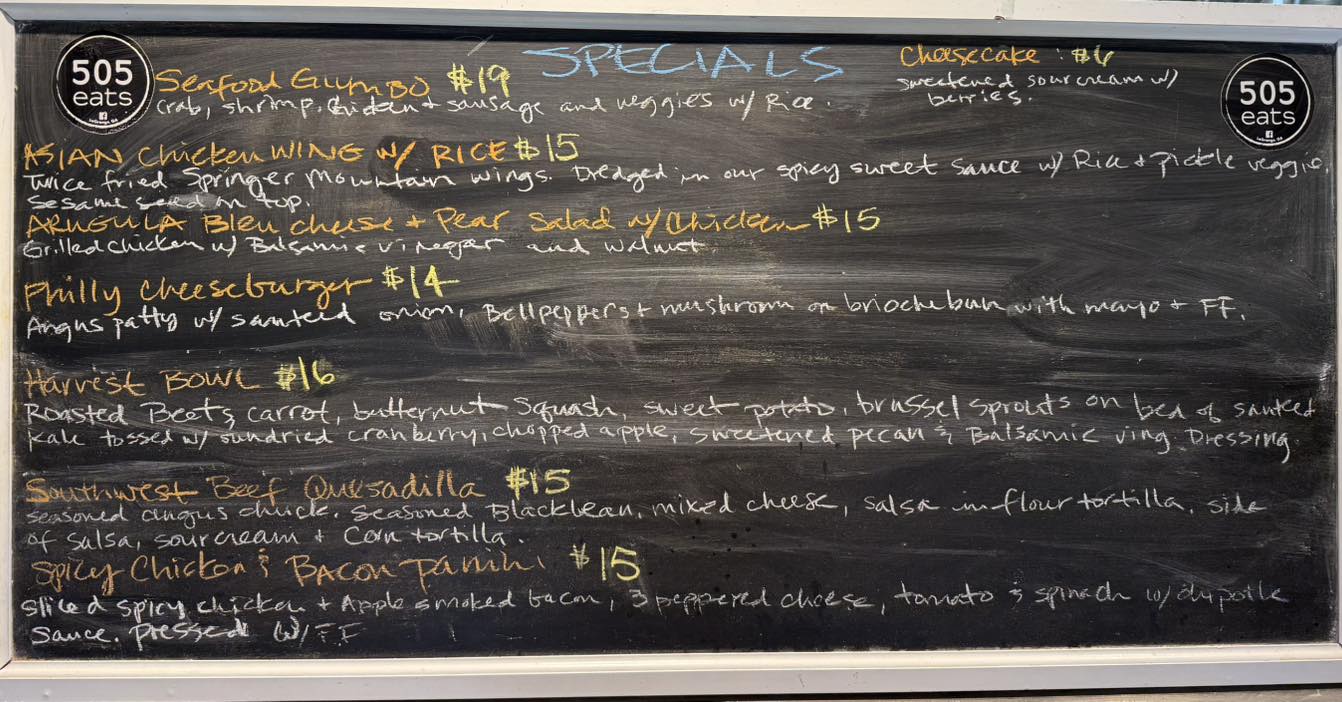 SPECIALS
505
eats
Seafood Gumbo $19
crab, shrimp, chicken + sausage and veggies w/ Rice.
Cheesecake : $6
sweetened sour cream w/
berries.
505
eats
ASIAN Chicken WING w/ RICE $15
Twice fried Springer Mountain wings. Dredged in our spicy sweet sauce w/ Rice + pickle veggie,
sesame seed on top.
ARUGULA Bleu cheese + Pear Salad w/ Chicken $15
Grilled chicken w/ Balsamic vinegar and walnut.
Philly Cheeseburger $14
Angus patty w/ sauteed onion, Bellpeppers + mushroom on brioche bun with mayo + FF.
Harvest Bowl $16
Roasted Beets, carrot, butternut Squash, sweet potato, brussel sprouts on bed of sauteed
kale tossed w/ sundried cranberry, chopped apple, sweetened pecan & Balsamic ving Dressing
Southwest Beef Quesadilla $15
seasoned angus chuck. seasoned Blackbean, mixed cheese, salsa in flour tortilla. side
of salsa, sour cream + Corn tortilla.
Spicy Chicken & Bacon panini $15
sliced spicy chicken + Apple smoked bacon, 3 peppered cheese, tomato & spinach w/ chipotle
sauce. pressed w/ FF